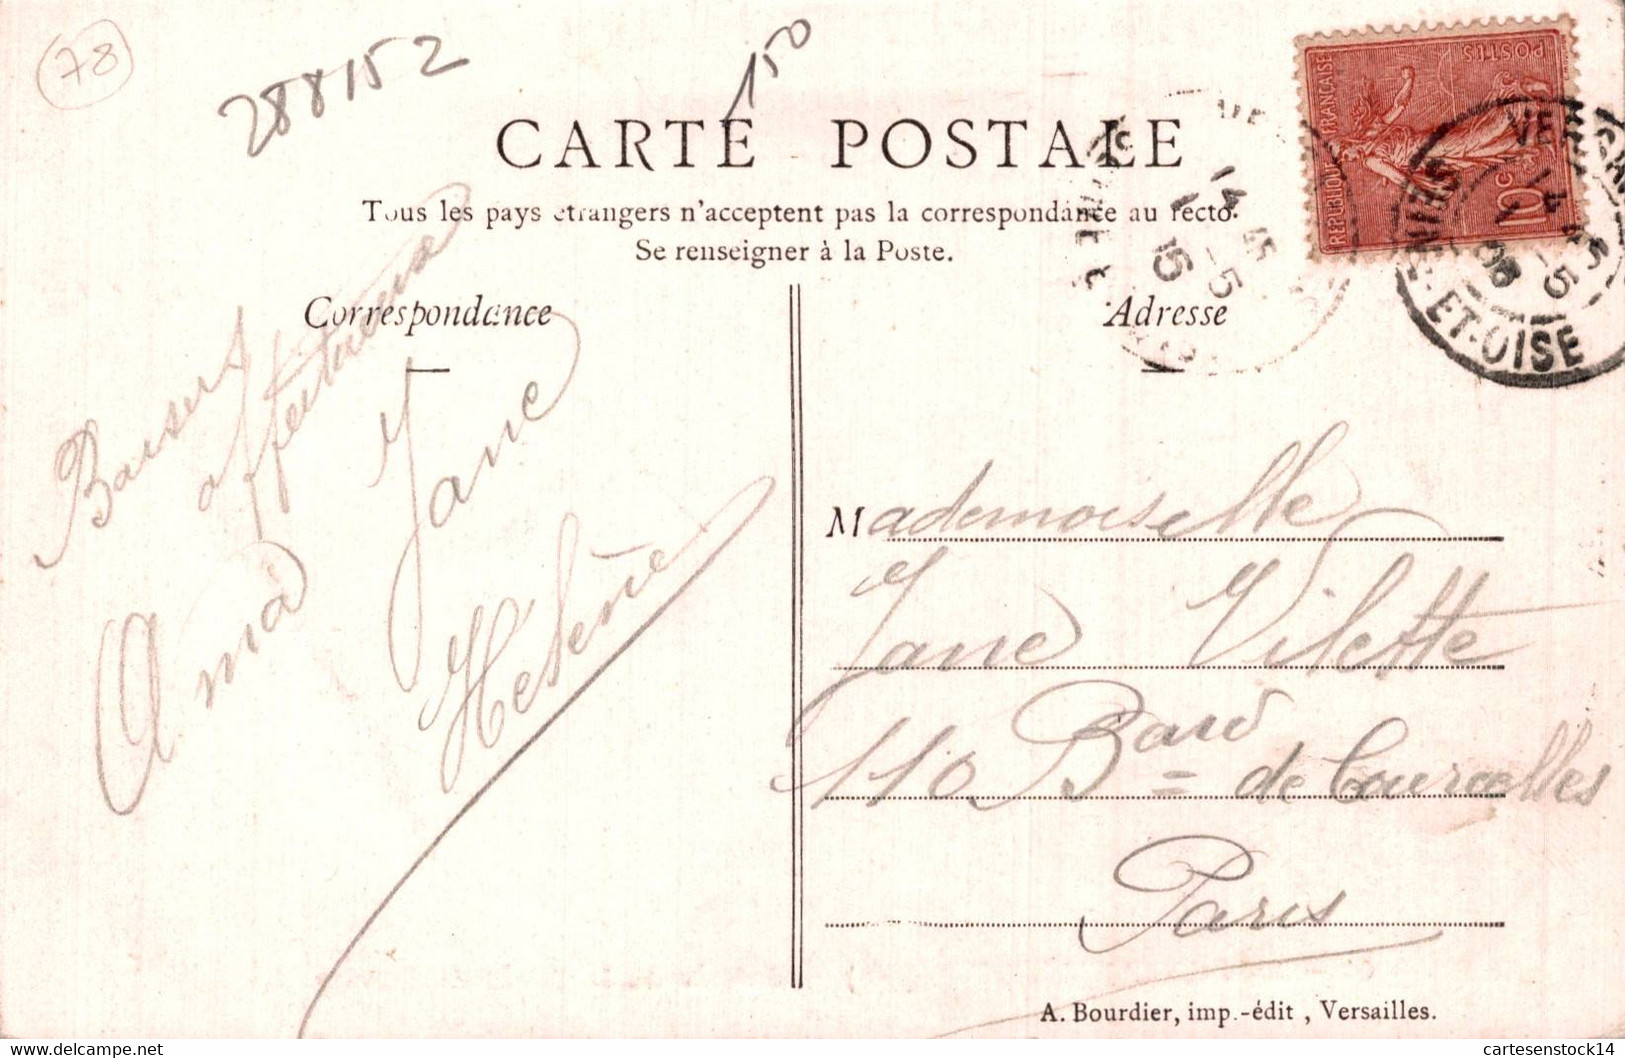 78
288152
150
CARTE POSTALE
Tous les pays étrangers n'acceptent pas la correspondance au recto.
Se renseigner à la Poste.
Correspondance
Adresse
REPUBLIQUE FRANÇAISE
POSTES
10c
14 45
-5
15
VERSAILLES
14 45
-5
06
SEINE-ET-OISE
Baisers
affectueux
a ma
Jane
Helène
Mademoiselle
Jane Vilette
110 Bard de Courcelles
Paris
A. Bourdier, imp.-édit, Versailles.
www.delcampe.net
cartesenstock14